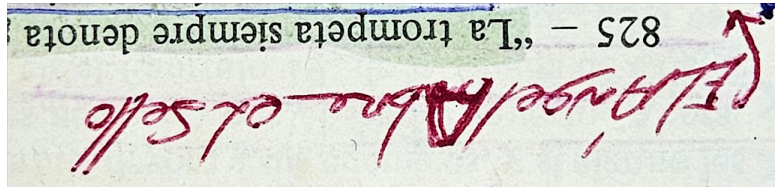 El Ángel Abre el Sello
825 – “La trompeta siempre denota